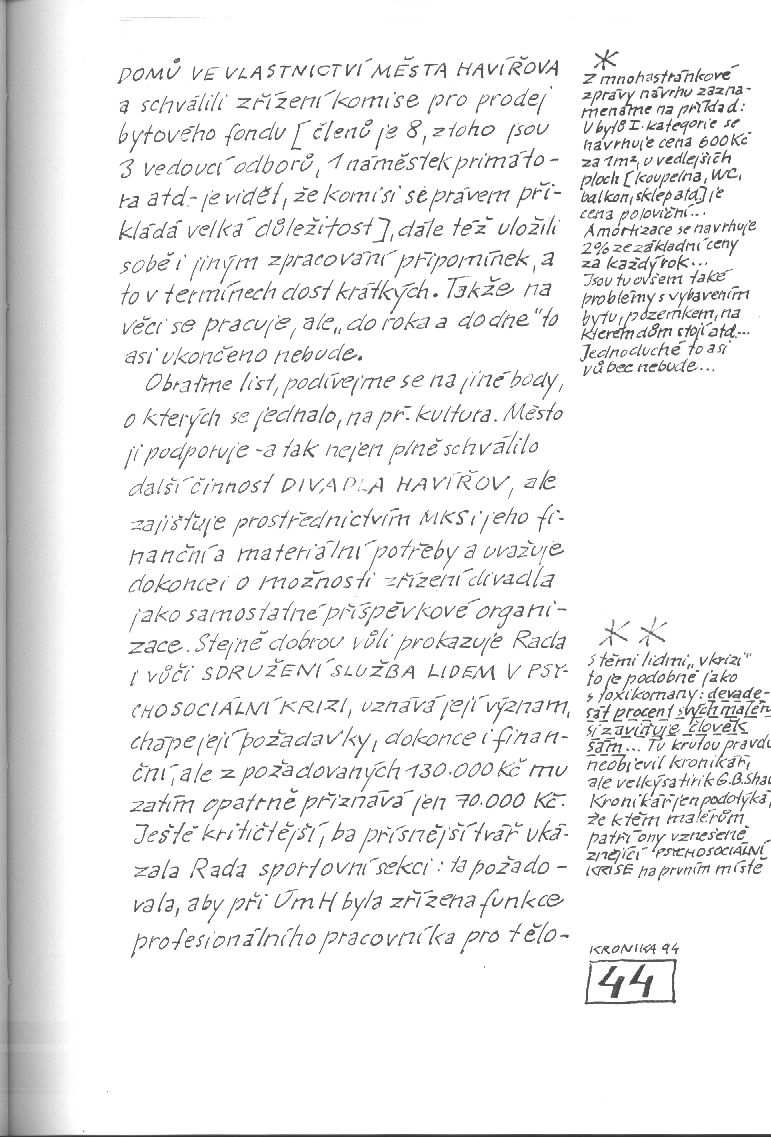 DOMŮ VE VLASTNICTVÍ MĚSTA HAVÍŘOVA
a schválili zřízení komise pro prodej
bytového fondu [členů je 8, z toho jsou
3 vedoucí odborů, 1 náměstek primáto-
ra atd- je vidět, že komisi se právem při-
kládá velká důležitost], dále též uložili
sobě i jiným zpracování připomínek, a
to v termínech dost krátkých. Takže na
věci se pracuje, ale „do roka a do dne" to
asi ukončeno nebude.
Obraťme list, podívejme se na jiné body,
o kterých se jednalo, na př. kultura. Město
ji podporuje - a tak nejen plně schválilo
další činnost DIVADLA HAVÍŘOV, ale
zajišťuje prostřednictvím MKS i jeho fi-
nanční a materiální potřeby a uvažuje
dokonce i o možnosti zřízení divadla
jako samostatné příspěvkové organi-
zace. Stejně dobrou vůli prokazuje Rada
i vůči SDRUŽENÍ SLUŽBA LIDEM V PSY-
CHOSOCIÁLNÍ KRIZI, uznává její význam,
chápe její požadavky, dokonce i finan-
ční, ale z požadovaných 130.000 Kč mu
zatím opatrně přiznává jen 70.000 Kč.
Ještě kritičtější, ba přísnější tvář uká-
zala Rada sportovní sekci: ta požado-
vala, aby při ÚmH byla zřízena funkce
profesionálního pracovníka pro tělo-
*
Z mnohastránkové
zprávy návrhu zazna-
menáme na příklad:
U bytů I. kategorie se
navrhuje cena 600 Kč
za 1m², u vedlejších
ploch [koupelna, WC,
balkon, sklep atd] je
cena poloviční...
Amortizace se navrhuje
2% ze základní ceny
za každý rok...
Jsou tu ovšem také
problémy s vybavením
bytu, pozemkem, na
kterém dům stojí atd...
Jednoduché to asi
vůbec nebude...
* *
S těmi lidmi „v krizi"
to je podobné jako
s toxikomany: devade-
sát procent svých malérů
si zaviňuje člověk
sám... Tu krutou pravdu
neobjevil kronikář,
ale velký satirik G.B.Shaw
Kronikář jen podotýká,
že k těm malérům
patří ony vznešeně
znějící PSYCHOSOCIÁLNÍ
KRISE na prvním místě
KRONIKA 94
44